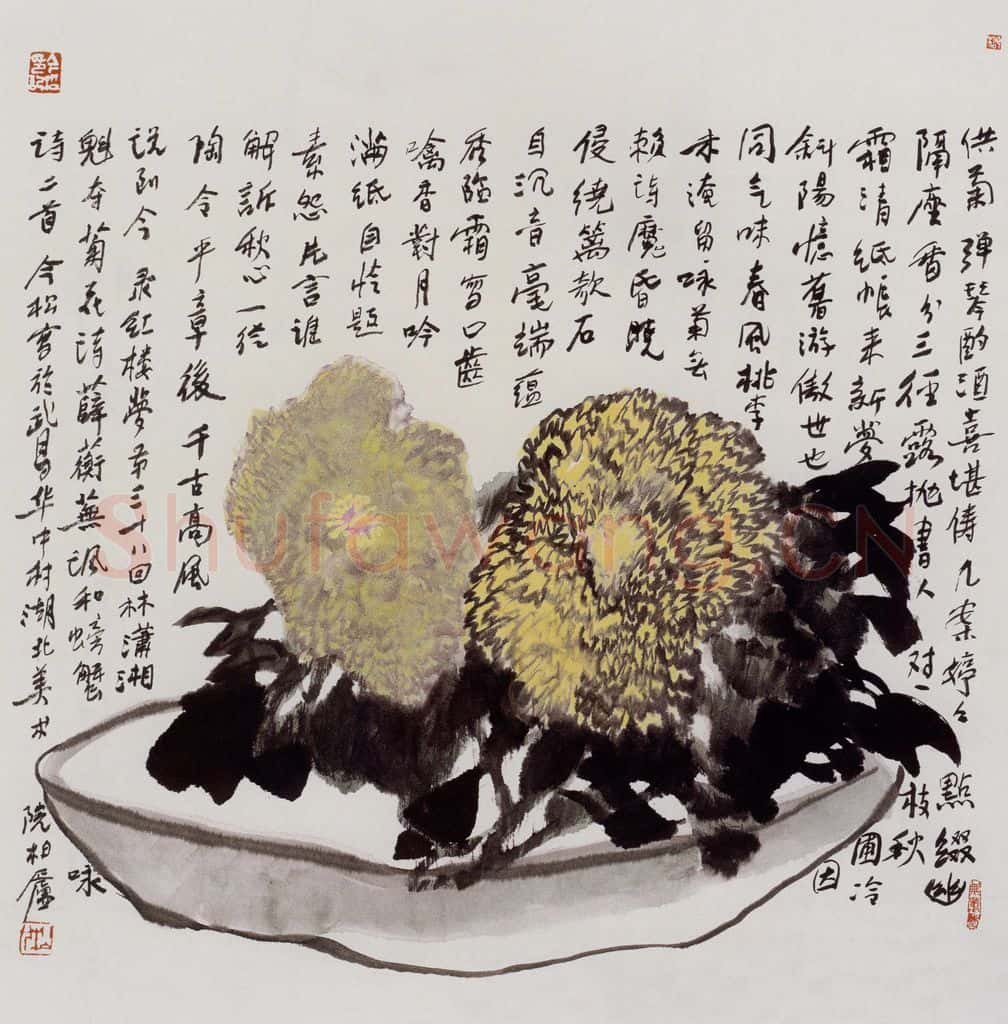 供菊 弹琴酌酒喜堪俦几案婷々點綴幽
隔座香分三徑露抛書人对一枝秋
霜清紙帳来新夢圃冷
斜陽憶舊游傲世也因
同气味春風桃李
未淹留咏菊无
赖诗魔昏曉
侵绕篱欹石
自沉音毫端蕴
秀臨霜写口齒
噙香對月吟
满纸自怜題
素怨片言谁
解訴秋心一從
陶令平章後千古高風
说到今 录红楼夢第三十八回林潇湘
魁夺菊花诗薛蘅蕪讽和螃蟹咏
诗二首 令松雪於武昌华中村湖北美术院柏庐
Shufawang.CN